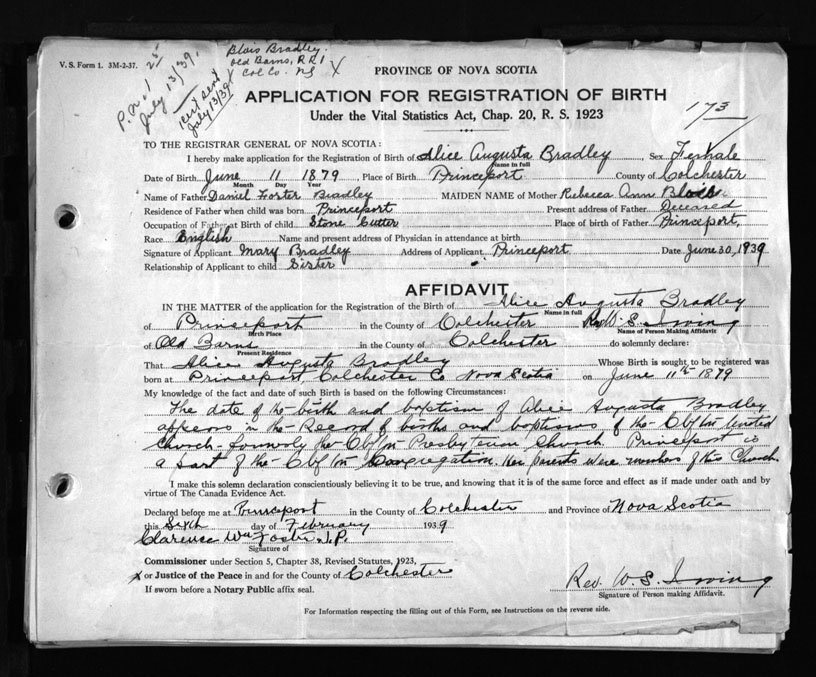 V. S. Form 1. 3M-2-37.
July 13/39.
cert sent
July 13/39
Blois Bradley.
Old Barns, R R 1
Col Co. NS X
PROVINCE OF NOVA SCOTIA
APPLICATION FOR REGISTRATION OF BIRTH
Under the Vital Statistics Act, Chap. 20, R. S. 1923
173
TO THE REGISTRAR GENERAL OF NOVA SCOTIA:
I hereby make application for the Registration of Birth of Alice Augusta Bradley, Sex Female
Name in full
Date of Birth June 11 1879, Place of Birth Princeport County of Colchester
Month Day Year
Name of Father Daniel Forter Bradley MAIDEN NAME of Mother Rebecca Ann Blois
Residence of Father when child was born Princeport Present address of Father Deceased
Occupation of Father at Birth of child Stone Cutter Place of birth of Father Princeport,
Race English Name and present address of Physician in attendance at birth
Signature of Applicant Mary Bradley Address of Applicant Princeport Date June 30, 1939
Relationship of Applicant to child Sister
AFFIDAVIT
IN THE MATTER of the application for the Registration of the Birth of Alice Augusta Bradley
Name in full
of Princeport in the County of Colchester Rev W. S. Irving
Birth Place Name of Person Making Affidavit
of Old Barns in the County of Colchester do solemnly declare:
Present Residence
That Alice Augusta Bradley Whose Birth is sought to be registered was
born at Princeport, Colchester Co Nova Scotia on June 11th 1879
My knowledge of the fact and date of such Birth is based on the following Circumstances:
The date of the birth and baptism of Alice Augusta Bradley
appears in the Record of births and baptisms of the Clifton United
Church - formerly the Clifton Presbyterian Church Princeport is
a part of the Clifton Congregation. Her parents were members of this Church.
I make this solemn declaration conscientiously believing it to be true, and knowing that it is of the same force and effect as if made under oath and by
virtue of The Canada Evidence Act.
Declared before me at Princeport in the County of Colchester and Province of Nova Scotia
this Sixth day of February 1939
Clarence Wm Foster J.P.
Signature of
Commissioner under Section 5, Chapter 38, Revised Statutes, 1923,
x or Justice of the Peace in and for the County of Colchester
If sworn before a Notary Public affix seal.
Rev. W. S. Irving
Signature of Person making Affidavit.
For Information respecting the filling out of this Form, see Instructions on the reverse side.